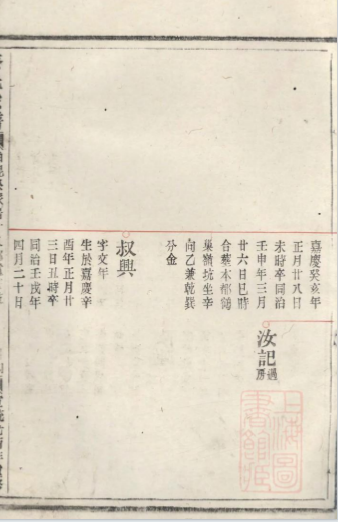 嘉慶癸亥年
正月廿八日
未時卒同治
壬申年三月
廿六日巳時
合葬本都
巢嶺坑坐辛
向乙兼乾巽
分金
汝記
過房
叔興
字交年
生於嘉慶辛
酉年正月廿
三日丑時卒
同治壬戌年
四月二十日
上海圖
書館藏